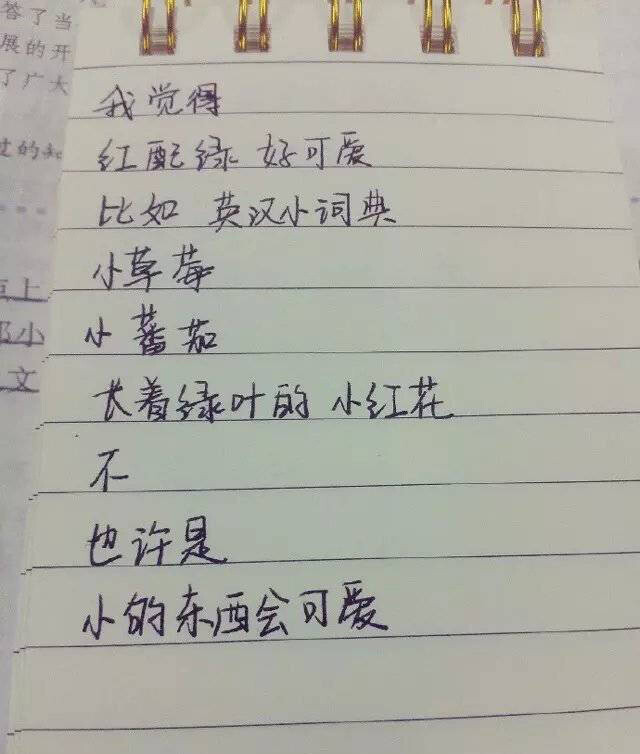 答了当
展的开
了广大
过的知
上
小
文
我觉得
红配绿 好可爱
比如 英汉小词典
小草莓
小蕃茄
长着绿叶的 小红花
不
也许是
小的东西会可爱